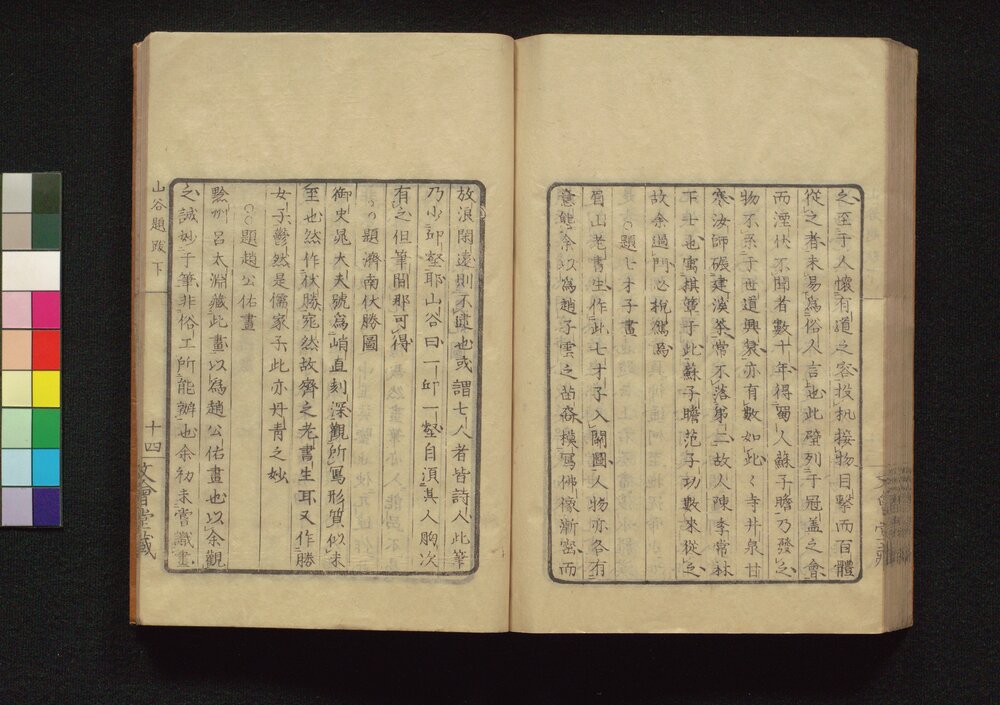 之至于人懷有道之容投机接物目擊而百體
從之者未易爲俗人言也此壁列于冠盖之會
而湮伏不聞者數十年得蜀人蘇子瞻乃發之
物不系于世道興衰亦有數如此〻寺井泉甘
寒汝師碾建溪茶常不落第二故人陳季常林
下士也寓棋簟于此蘇子瞻范子功數來從之
故余過門必稅駕焉
○題七才子畫
眉山老書生作此七才子入關圖人物亦各有
意態余以爲趙子雲之苗裔摸寫佛像漸密而
放浪閑遠則不逮也或謂七人者皆詩人此筆
乃少丘壑耶山谷曰一丘一壑自湏其人胸次
有之但筆間那可得
○題濟南伏勝圖
御史晁大夫號爲峭直刻深觀所寫形質似未
至也然作伏勝宛然故齊之老書生耳又作勝
女子鬱然是儒家子此亦丹青之妙
○○題趙公佑畫
黔州呂太淵藏此畫以爲趙公佑畫也以余觀
之誠妙于筆非俗工所能辦也余初未嘗識畫
山谷題跋下
十四
文會堂藏